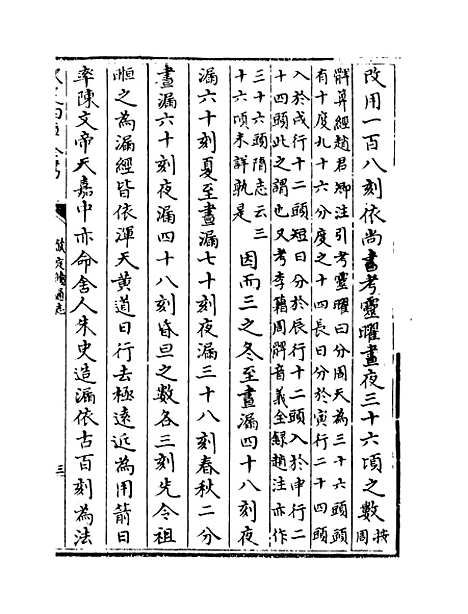 改用一百八刻依尚書考靈曜晝夜三十六頃之數按周
髀算經趙君卿注引考靈曜曰分周天為三十六頭頭
有十度九十六分度之十四長日分於寅行二十四頭
入於戌行十二頭短日分於辰行十二頭入於申行二
十四頭此之謂也又考李籍周髀音義全録趙注亦作
三十六頭隋志云三
十六頃未詳孰是
因而三之冬至晝漏四十八刻夜
漏六十刻夏至晝漏七十刻夜漏三十八刻春秋二分
晝漏六十刻夜漏四十八刻昏旦之數各三刻先令祖
暅之為漏經皆依渾天黃道日行去極遠近為用箭日
率陳文帝天嘉中亦命舍人朱史造漏依古百刻為法
欽定續通志
三